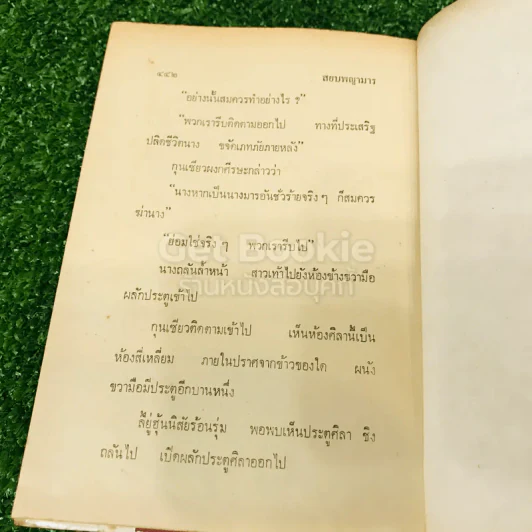 ๔๔๒ สอบพญามาร
"อย่างนั้นสมควรทำอย่างไร ?"
"พวกเรารีบติดตามออกไป ทางที่ประเสริฐ
ปลิดชีวิตนาง ขจัดเภทภัยภายหลัง"
กุนเซียวผงกศีรษะกล่าวว่า
"นางหากเป็นนางมารอันชั่วร้ายจริง ๆ ก็สมควร
ฆ่านาง"
"ย่อมใช่จริง ๆ พวกเรารีบไป"
Get Bookie
นางถลันล้ำหน้า สาวเท้าไปยังห้องข้างขวามือ
ร้านหนังสือบุคกี้
ผลักประตูเข้าไป
กุนเซียวติดตามเข้าไป เห็นห้องศิลานี้เป็น
ห้องสี่เหลี่ยม ภายในปราศจากข้าวของใด ผนัง
ขวามือมีประตูอีกบานหนึ่ง
ลี้ยู่ฮุ้นนิสัยร้อนรุ่ม พอพบเห็นประตูศิลา ชิง
ถลันไป เปิดผลักประตูศิลาออกไป